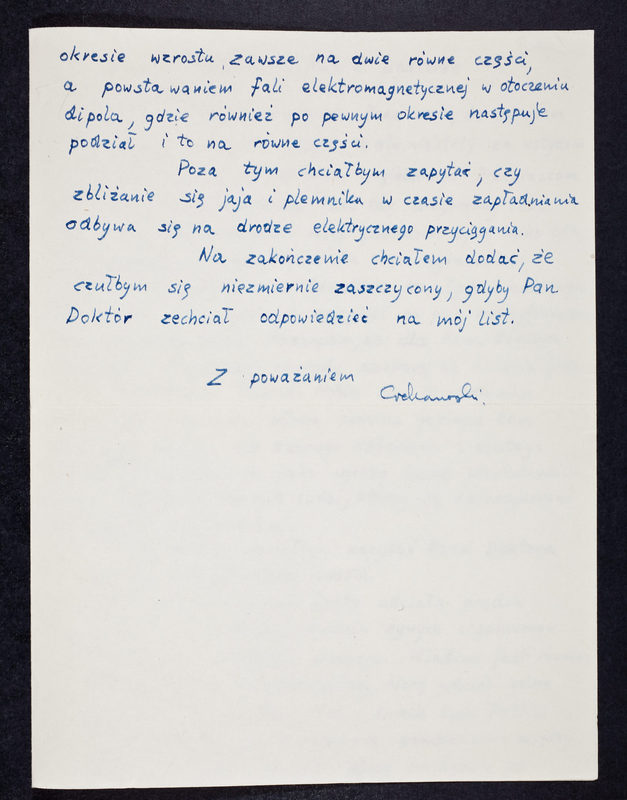 okresie wzrostu, zawsze na dwie równe części,
a powstawaniem fali elektromagnetycznej w otoczeniu
dipola, gdzie również po pewnym okresie następuje
podział i to na równe części.
Poza tym chciałbym zapytać, czy
zbliżanie się jaja i plemnika w czasie zapładniania
odbywa się na drodze elektrycznego przyciągania.
Na zakończenie chciałem dodać, że
czułbym się niezmiernie zaszczycony, gdyby Pan
Doktór zechciał odpowiedzieć na mój list.
Z poważaniem